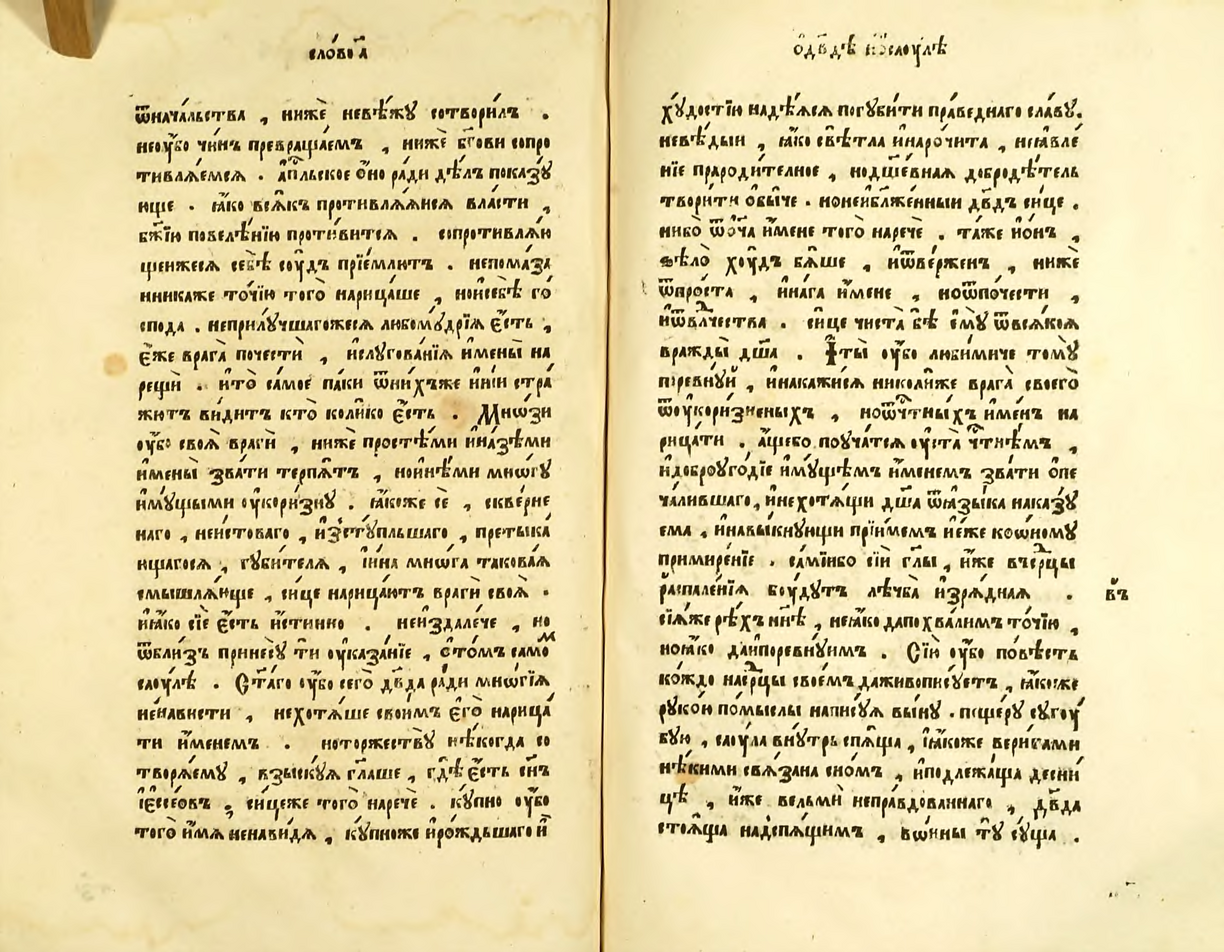 сло́во а҃
ѿнача́льства , нижѐ неве́жꙋ сотвори́лъ .
неоу҆́бо чи́нъ превраща́емъ , нижѐ бг҃ови сопро
тивлѧ́емсѧ . а҆пⷭ҇льское ѻ҆́но ра́ди дѣ́лъ показꙋ́
юще . ꙗ҆́ко всѧ́къ противлѧ́ѧисѧ вла́сти ,
бж҃їю повелѣ́нїю проти́витсѧ . сопротивлѧ́ю
щенжесѧ себѣ̀ соу́дъ прїе́млютъ . непома́за
нникаже то́чїю того̀ нарица́ше , нои҆себѣ̀ го́
спода . неприлꙋ́чшагожесѧ любомꙋ́дрїѧ є҆́сть ,
є҆́же врага̀ почестѝ , и҆слꙋгова́нїѧ и҆́мены на
рещѝ . и҆то̀ са́мое па́ки ѿни́хъже и҆нїи стра́
жютъ ви́дитъ кто̀ коли́ко є҆́сть . Мно́зи
оу҆́бо своѧ̀ врагѝ , нижѐ просте́ми и҆на́зѣми
и҆́мены зва́ти терпѧ́тъ , нои҆нѣ́ми мно́гꙋ
и҆мꙋ́щыми оу҆кори́знꙋ . ꙗ҆́коже сѐ , скве́рне
наго , неи́стоваго , и҆зстꙋ́пльшаго , претыка́
ющагосѧ , гꙋби́телѧ , и҆и҆на мно́га такова́ѧ
смышлѧ́юще , си́це нарица́ютъ врагѝ своѧ̀ .
и҆ꙗ҆́ко сїѐ є҆́сть и҆́стинно . неи҆здале́че , но
ѿбли́зъ принесꙋ́ ти оу҆каза́нїе , сто́мъ само́ⷨ
саоу́лѣ . Ст҃а́го оу҆́бо сего̀ дв҃да ра́ди мно́гїѧ
не́нависти , нехотѧ́ше свои́мъ є҆го̀ нарица́
ти и҆́менемъ . ноторжествꙋ̀ нѣ́когда со
творѧ́емꙋ , взыскꙋ́ѧ гл҃аше , гдѣ̀ є҆́сть сн҃ъ
і҆ессе́овъ , си́цеже того̀ наречѐ . кꙋ́пно оу҆́бо
того̀ и҆́мѧ ненави́дѧ , кꙋ́пноже и҆ро́ждьшаго и҆
ѡ҆дв҃дѣ и҆ѡ҆саоу́лѣ
хꙋ́достїю надѣ́ѧсѧ погꙋби́ти пра́веднаго сла́вꙋ.
невѣ́дыи , ꙗ҆́ко свѣ́тла и҆нарочи́та , неꙗ҆вле́
нїе прароди́телное , нодш҃е́внаѧ добродѣ́тель
твори́ти ѻ҆бы́че . нонеи҆бл҃же́нныи дв҃дъ си́це .
нибо̀ ѿѻ҆ч҃а и҆́мене того̀ наречѐ . та́же и҆о́нъ ,
ѕѣло̀ хоу́дъ бѧ́ше , и҆ѿве́рженъ , нижѐ
ѿпро́ста , и҆на́га и҆́мене , ноѿпоче́сти ,
и҆ѿвлⷣчества . си́це чиста̀ бѣ̀ є҆мꙋ̀ ѿвсѧ́коѧ
вражды̀ дш҃а . І҆ты̀ оу҆́бо люби́миче томꙋ̀
поревнꙋ́й , и҆накажи́сѧ николи́же врага̀ своего̀
ѿоу҆кори́зненыхъ , ноѿчⷭ҇тны́хъ и҆ме́нъ на
рица́ти . а҆́щебо поуча́тсѧ оу҆ста̀ чⷭ҇тнѣ́мъ ,
и҆доброуго́дїе и҆мꙋ́щѣмъ и҆́менемъ зва́ти ѻ҆пе
ча́лившаго, и҆нехотѧ́щи дш҃а ѿѧ҆зы́ка наказꙋ́
ема , и҆навы́кнꙋющи прїи́мемъ не́же ко́ѡномꙋ
примире́нїе . са́миибо сїѝ гл҃ы , и҆́же всⷬ҇дцы
распале́нїѧ боу́дꙋтъ лѣ́чба и҆зрѧ́днаѧ . въ
сїѧ́же рѣ́хъ ны́нѣ , неꙗ҆́ко дапохва́лимъ то́чїю ,
ноꙗ҆́ко дай҆поревнꙋ́имъ . Сїю̀ оу҆́бо по́вѣсть
ко́ждо насрⷣцы свое́мъ даживопи́сꙋетъ , ꙗ҆́коже
рꙋко́ю по́мыслы напи́сꙋѧ вы́нꙋ . пеще́рꙋ сꙋгоу́
бꙋю , саоу́ла внꙋ́трь спѧ́ща , і҆ꙗ҆́коже вери́гами
нѣ́кими свѧ́зана сно́мъ , и҆подлежа́ща десни́
цѣ , и҆́же вельмѝ непра́вдованнаго , дв҃да
стоѧ́ща надспѧ́щимъ , во́ины тꙋ̀ сꙋ́ща .